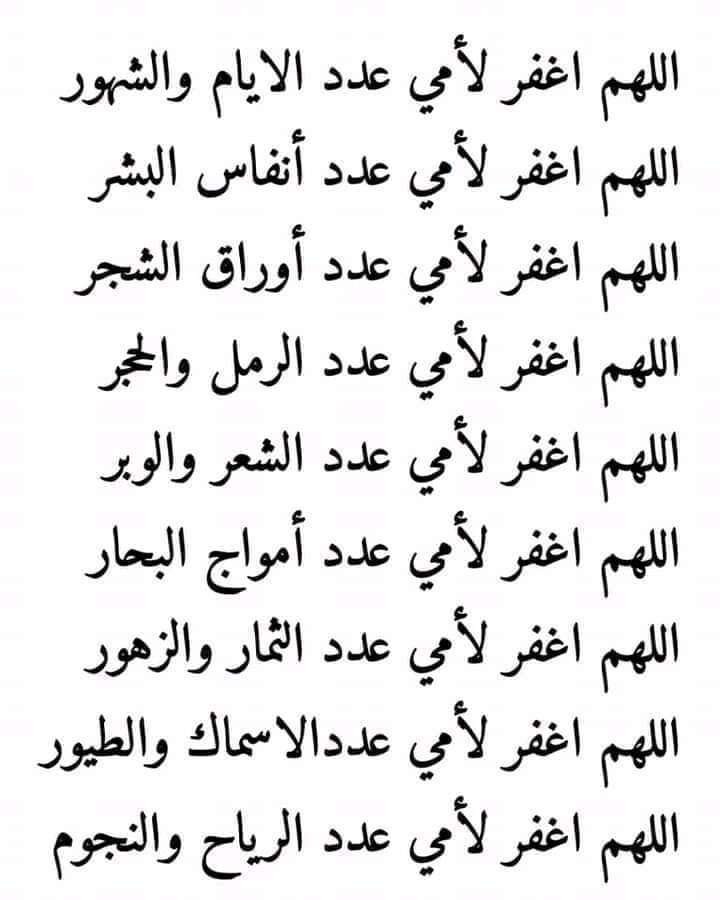 اللهم اغفر لأمي عدد الايام والشهور
اللهم اغفر لأمي عدد أنفاس البشر
اللهم اغفر لأمي عدد أوراق الشجر
اللهم اغفر لأمي عدد الرمل والحجر
اللهم اغفر لأمي عدد الشعر والوبر
اللهم اغفر لأمي عدد أمواج البحار
اللهم اغفر لأمي عدد الثمار والزهور
اللهم اغفر لأمي عددالاسماك والطيور
اللهم اغفر لأمي عدد الرياح والنجوم